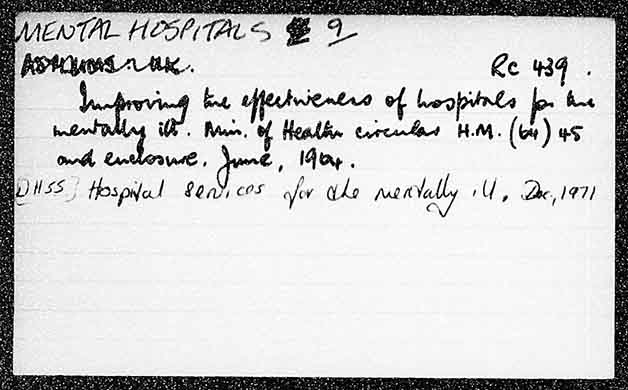 MENTAL HOSPITALS 9
ASYLUMS - UK. RC 439.
Improving the effectiveness of hospitals for the
mentally ill. Min. of Health circular H.M. (64) 45
and enclosure. June, 1964.
[DHSS] Hospital services for the mentally ill. Dec, 1971